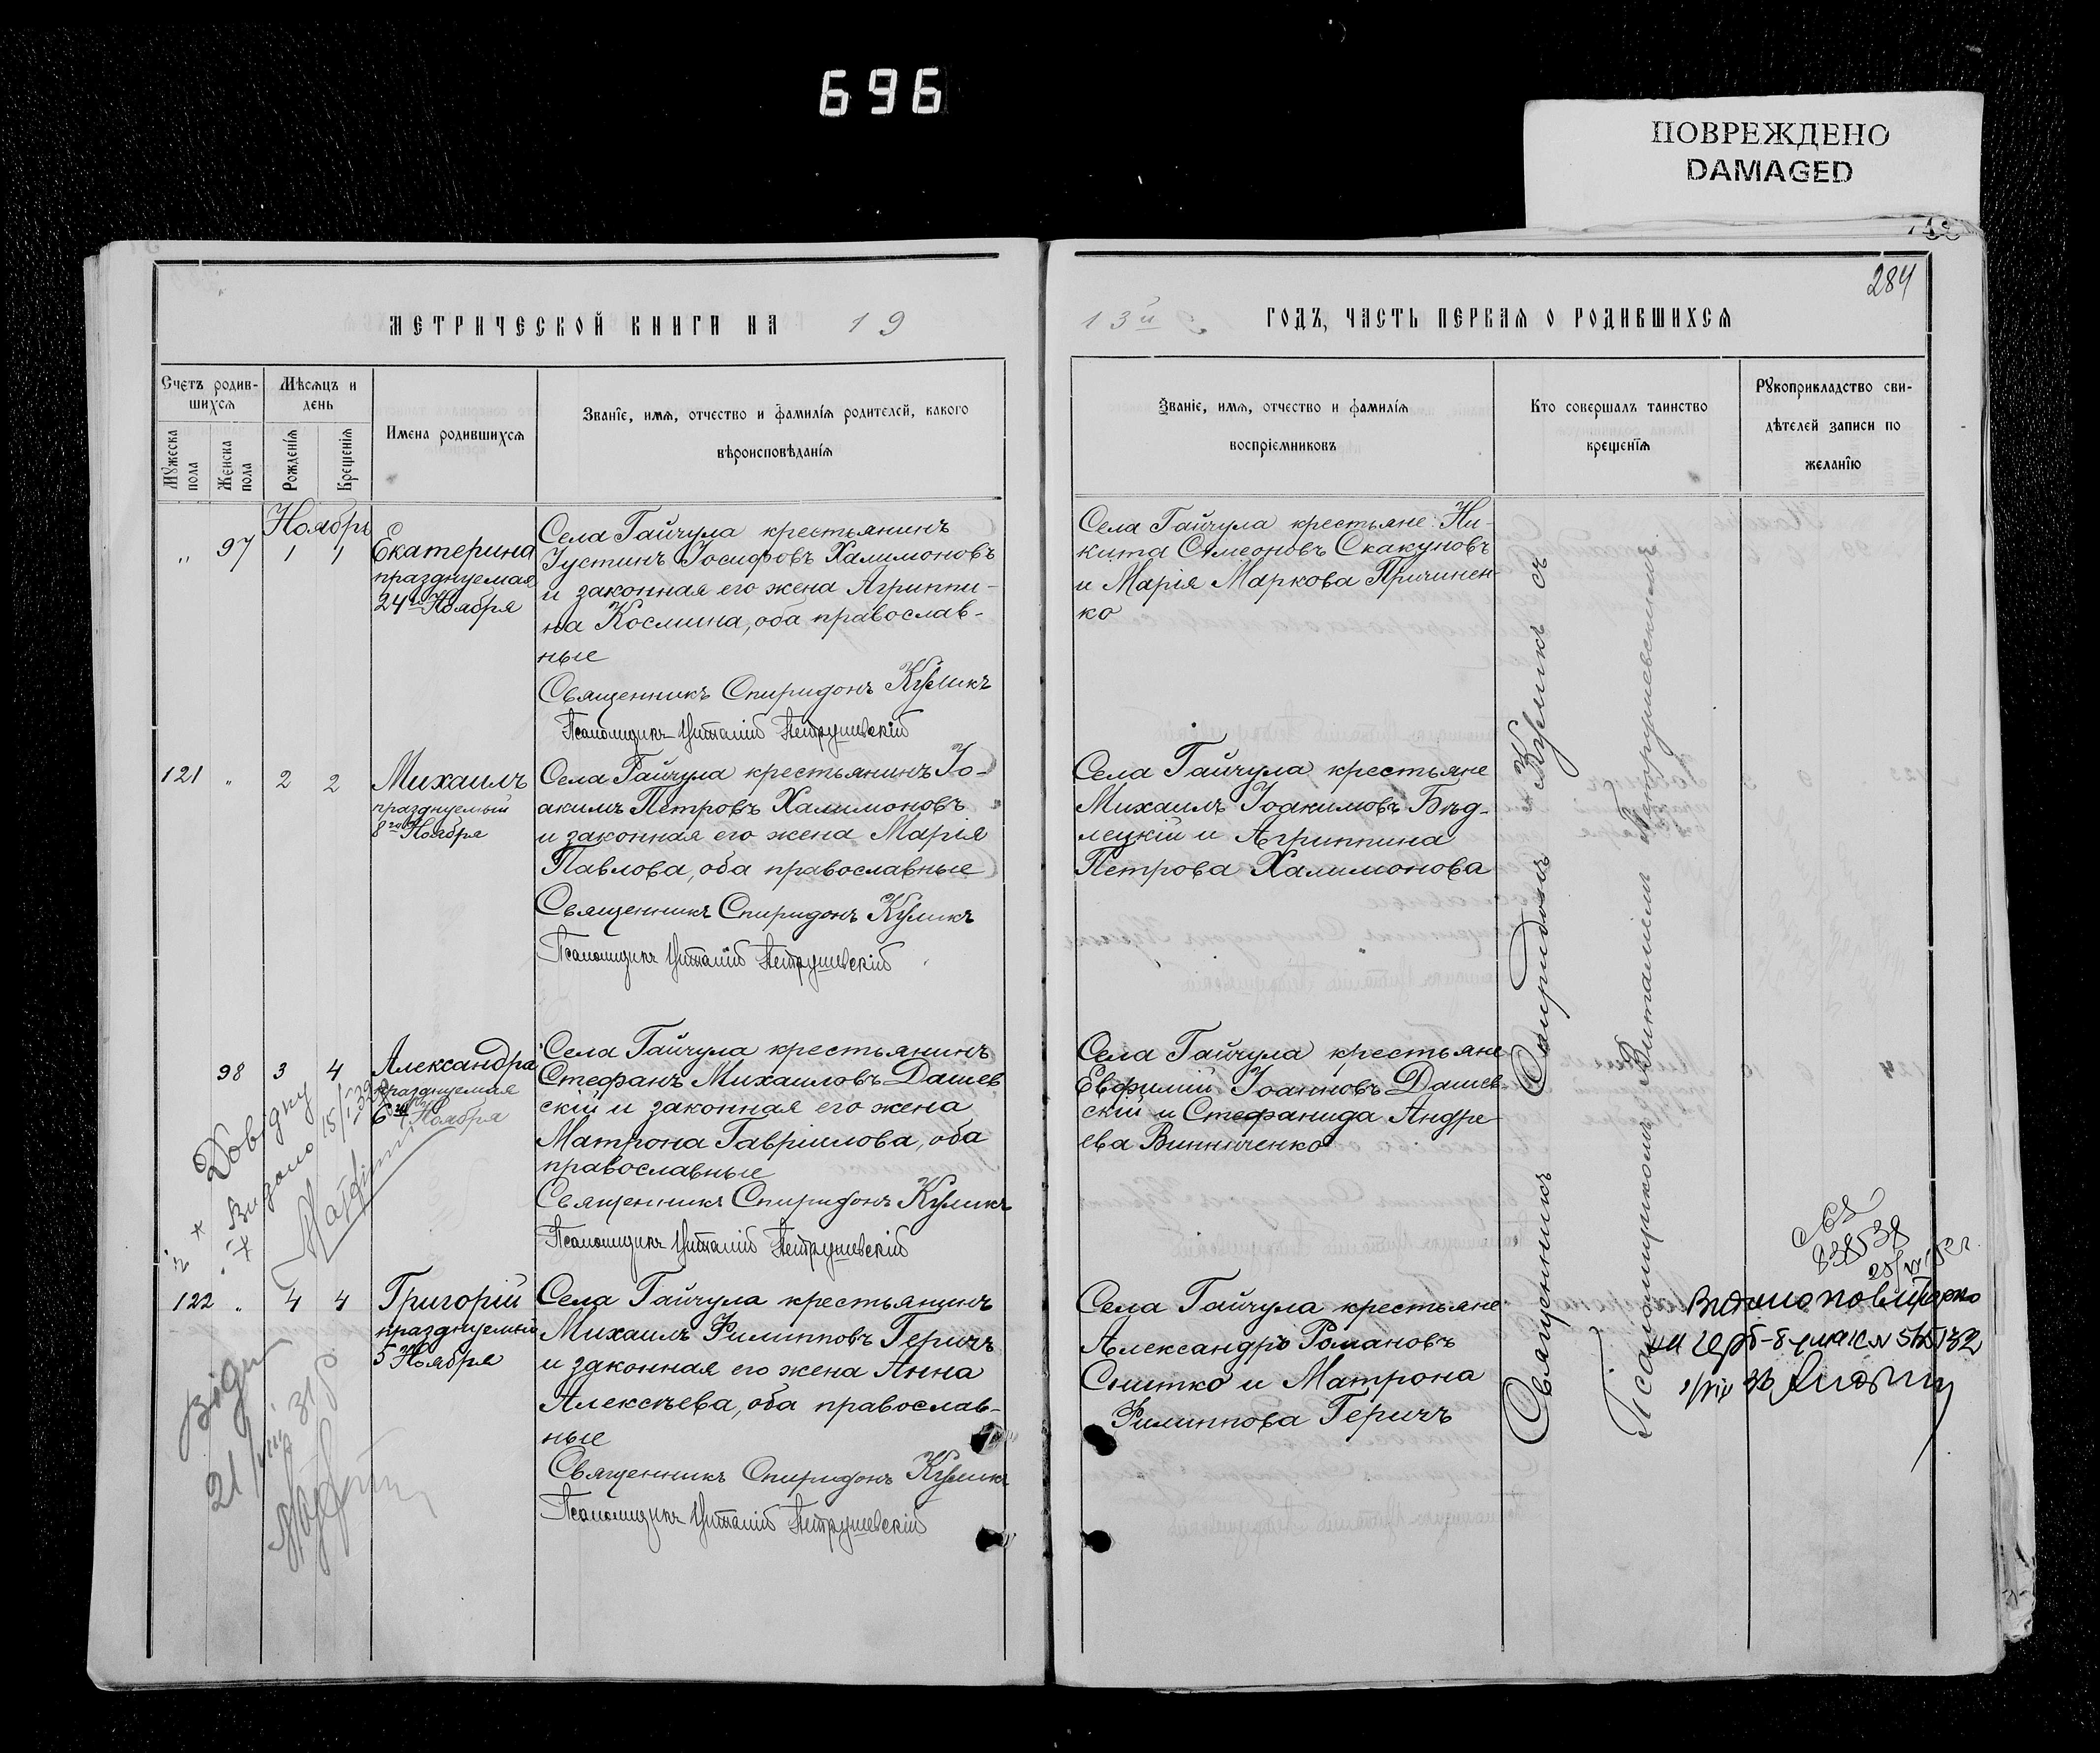 696
ПОВРЕЖДЕНО
DAMAGED
284
МЕТРИЧЕСКОЙ КНИГИ НА 19
13й ГОДЪ, ЧАСТЬ ПЕРВАЯ О РОДИВШИХСЯ
Счетъ родив-
шихся
Мужеска пола
Женска пола
Мѣсяцъ и
день
Рожденія
Крещенія
Имена родившихся
Званіе, имя, отчество и фамилія родителей, какого
вѣроисповѣданія
Званіе, имя, отчество и фамилія
воспріемниковъ
Кто совершалъ таинство
крещенія
Рукоприкладство сви-
дѣтелей записи по
желанію
Ноябрь
" 97 1 1
Екатерина
празднуемая
24го Ноября
Села Гайчула крестьянинъ
Іустинъ Іосифовъ Халимоновъ
и законная его жена Агриппи-
на Космина, оба православ-
ные
Священникъ Спиридонъ Куликъ
Псаломщикъ Виталій Петрушевскій
Села Гайчула крестьяне: Ни-
кита Симеоновъ Скакуновъ
и Марія Маркова Причинен-
ко
121 " 2 2
Михаилъ
празднуемый
8го Ноября
Села Гайчула крестьянинъ Іо-
акимъ Петровъ Халимоновъ
и законная его жена Марія
Павлова, оба православные
Священникъ Спиридонъ Куликъ
Псаломщикъ Виталій Петрушевскій
Села Гайчула крестьяне
Михаилъ Іоакимовъ Бѣд-
лецкій и Агриппина
Петрова Халимонова
98 3 4
Александра
празднуемая
6го Ноября
Села Гайчула крестьянинъ
Стефанъ Михаиловъ Дашев
скій и законная его жена
Матрона Гавріилова, оба
православные
Священникъ Спиридонъ Куликъ
Псаломщикъ Виталій Петрушевскій
Села Гайчула крестьяне
Евфимій Іоанновъ Дашев-
скій и Стефанида Андре-
ева Винниченко
Довідку
Видано 15/I
122 " 4 4
Григорій
празднуемый
5го Ноября
Села Гайчула крестьянинъ
Михаилъ Филипповъ Геричъ
и законная его жена Анна
Алексѣева, оба православ-
ные
Священникъ Спиридонъ Куликъ
Псаломщикъ Виталій Петрушевскій
Села Гайчула крестьяне:
Александръ Романовъ
Снитко и Матрона
Филиппова Геричъ
21/VIII 31
Священникъ Спиридонъ Куликъ съ
Псаломщикомъ Виталіемъ Петрушевскимъ